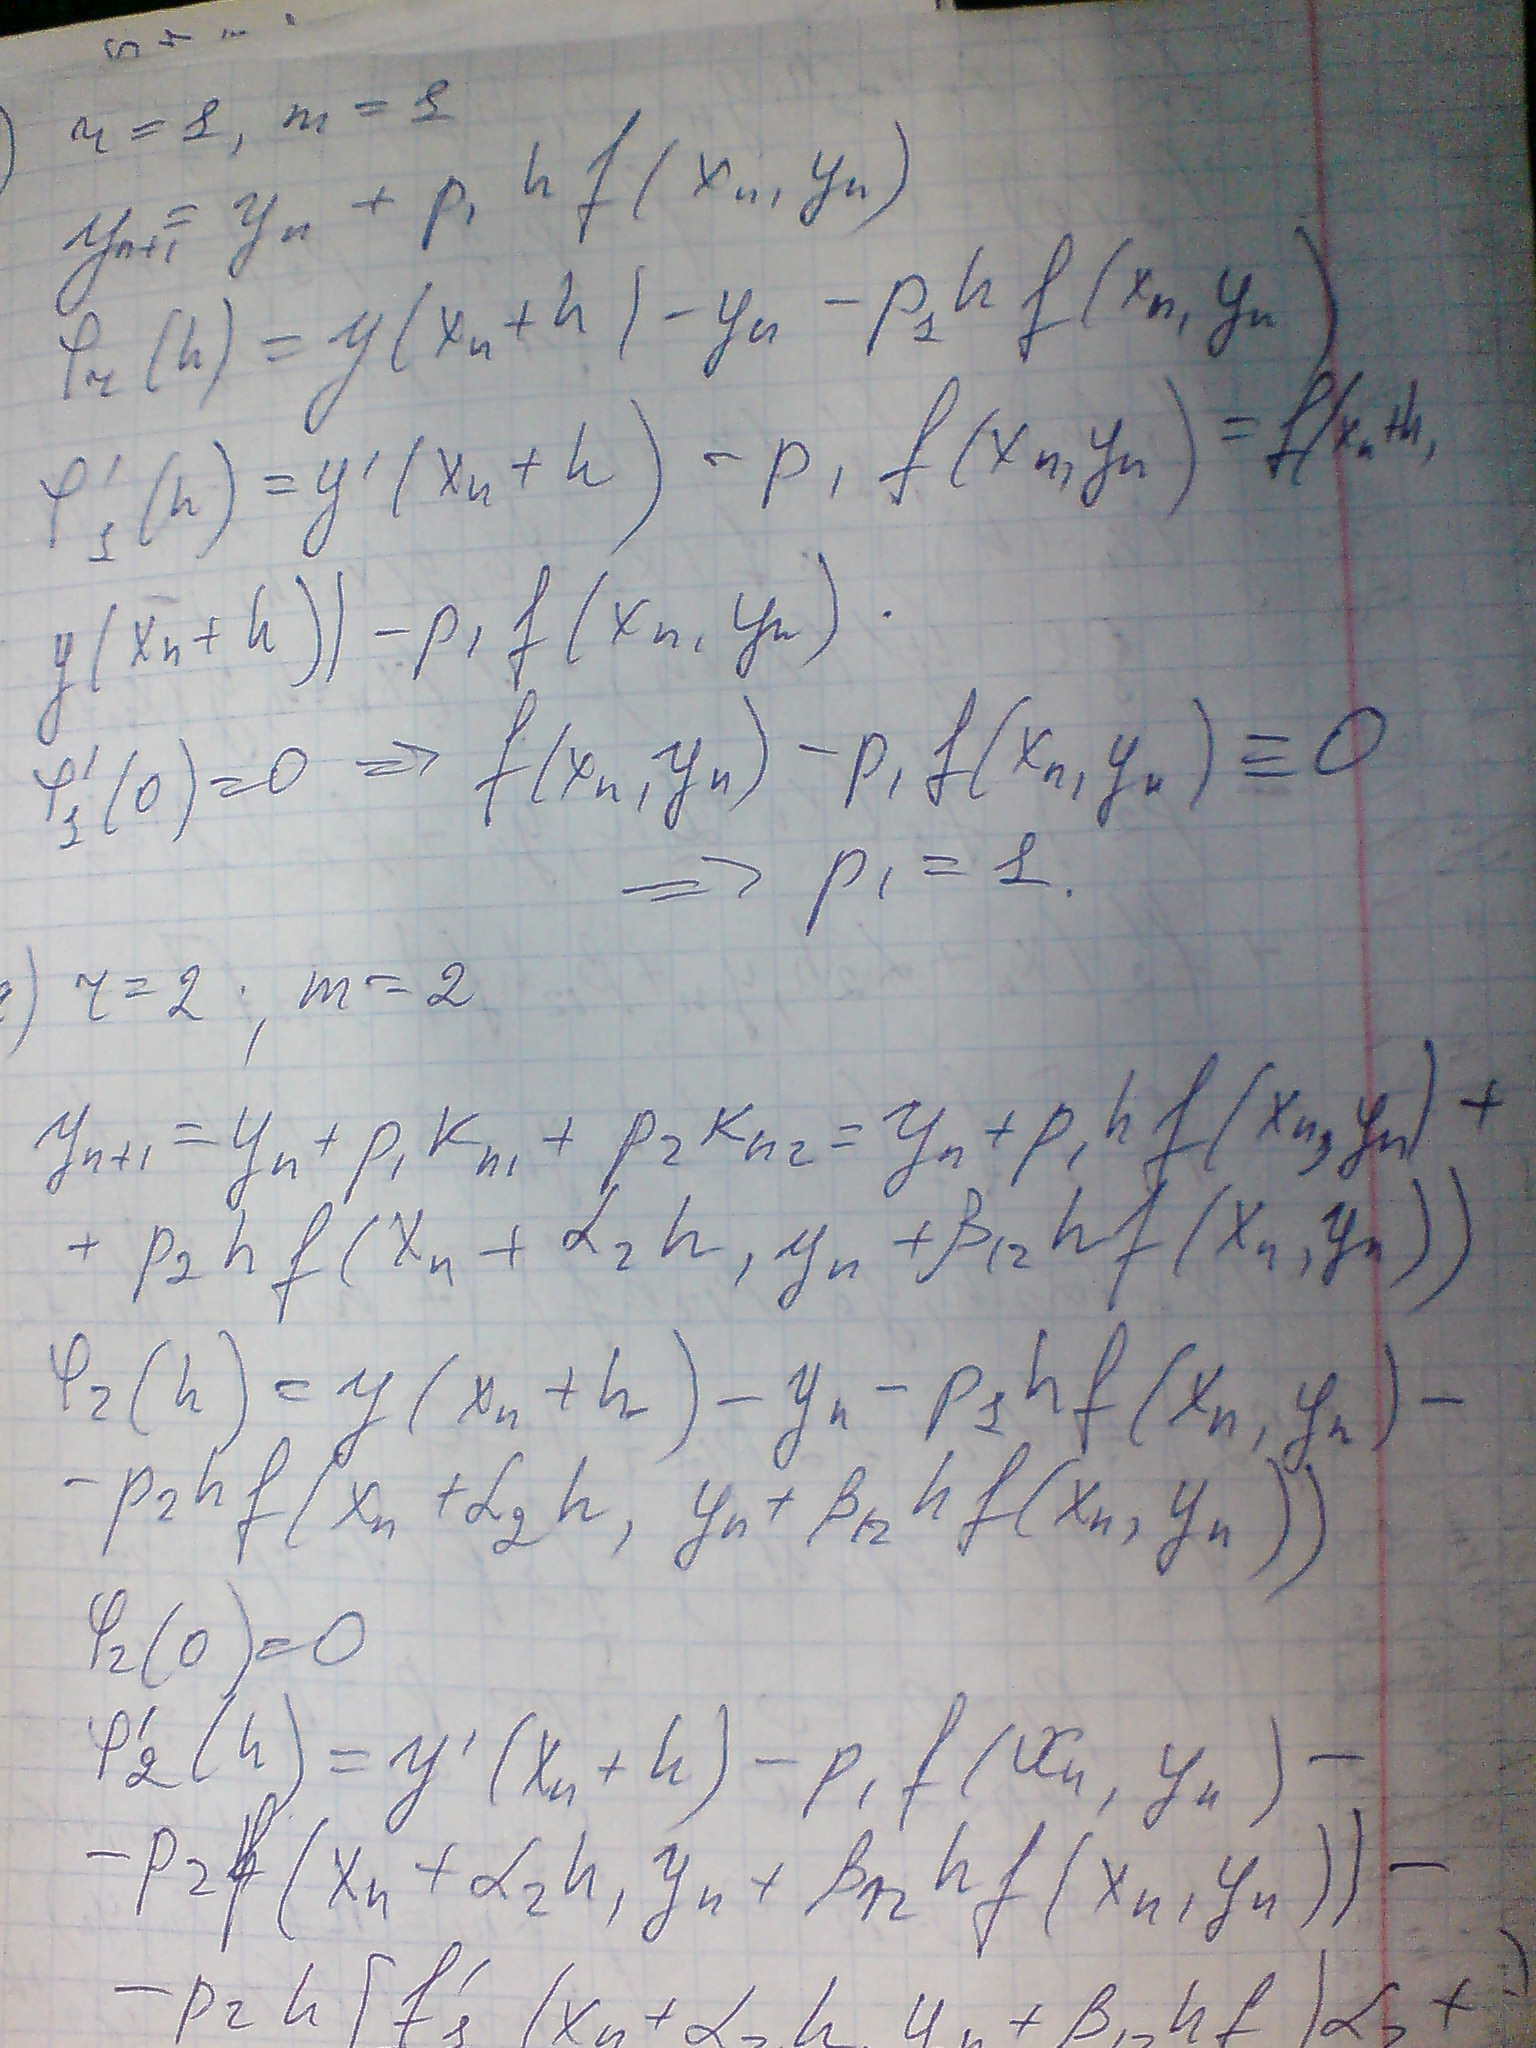 ) r = 1, m = 1
yₙ₊₁ = yₙ + p₁ h f(xₙ, yₙ)
φᵣ(h) = y(xₙ + h) - yₙ - p₁ h f(xₙ, yₙ)
φ'₁(h) = y'(xₙ + h) - p₁ f(xₙ, yₙ) = f(xₙ + h,
y(xₙ + h)) - p₁ f(xₙ, yₙ).
φ'₁(0) = 0 ⇒ f(xₙ, yₙ) - p₁ f(xₙ, yₙ) ≡ 0
⇒ p₁ = 1.
) r = 2, m = 2
yₙ₊₁ = yₙ + p₁ kₙ₁ + p₂ kₙ₂ = yₙ + p₁ h f(xₙ, yₙ) +
+ p₂ h f(xₙ + α₂ h, yₙ + β₁₂ h f(xₙ, yₙ))
φ₂(h) = y(xₙ + h) - yₙ - p₁ h f(xₙ, yₙ) -
- p₂ h f(xₙ + α₂ h, yₙ + β₁₂ h f(xₙ, yₙ))
φ₂(0) = 0
φ'₂(h) = y'(xₙ + h) - p₁ f(xₙ, yₙ) -
- p₂ f(xₙ + α₂ h, yₙ + β₁₂ h f(xₙ, yₙ)) -
- p₂ h [f'₁(xₙ + α₂ h, yₙ + β₁₂ h f) α₂ +